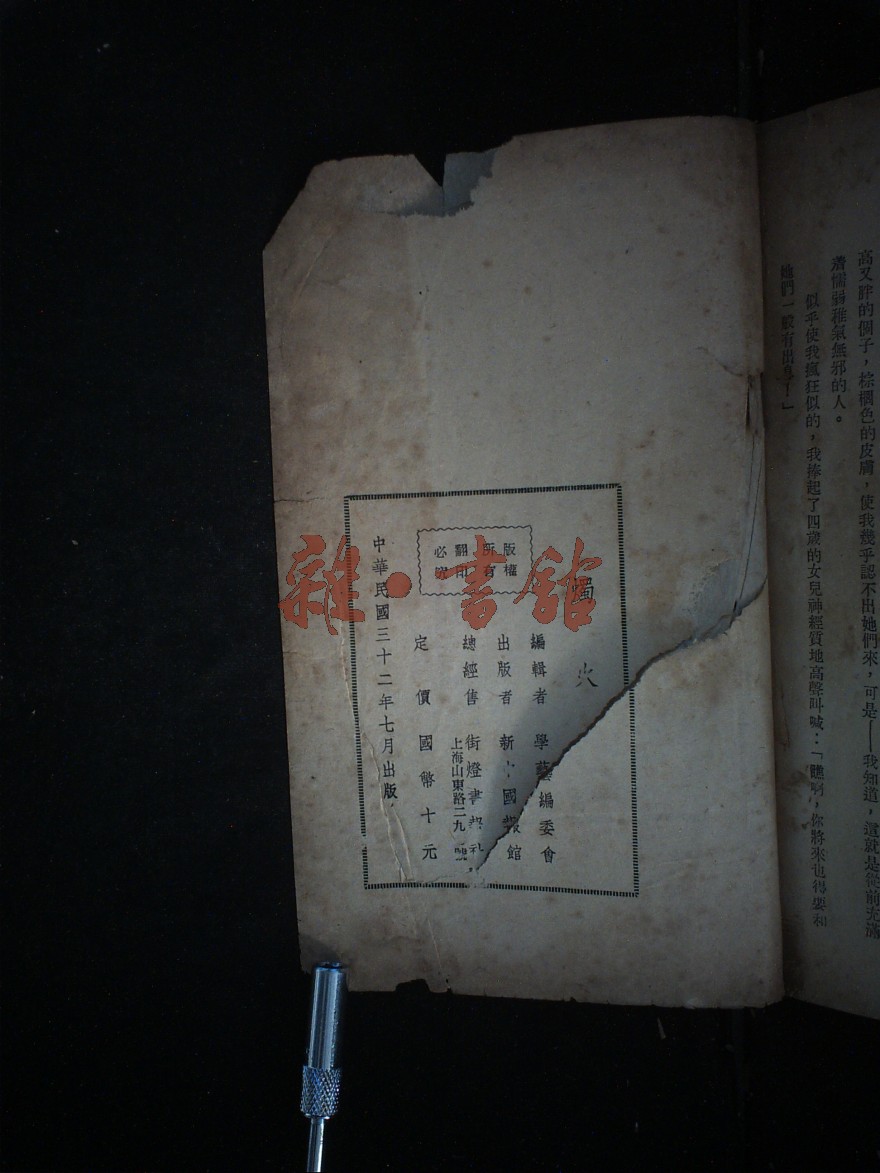 高又胖的個子，棕櫚色的皮膚，使我幾乎認不出她們來，可是——我知道，這就是從前充滿
着懦弱稚氣無邪的人。
似乎使我瘋狂似的，我捧起了四歲的女兒神經質地高聲叫喊：「瞧啊，你將來也得要和
她們一般有出息了！」
燭火
版權
所有
翻印
必究
編輯者 學藝編委會
出版者 新中國報館
總經售 街燈書報社
上海山東路二九 號
定價國幣十元
中華民國三十二年七月出版
雜·書館